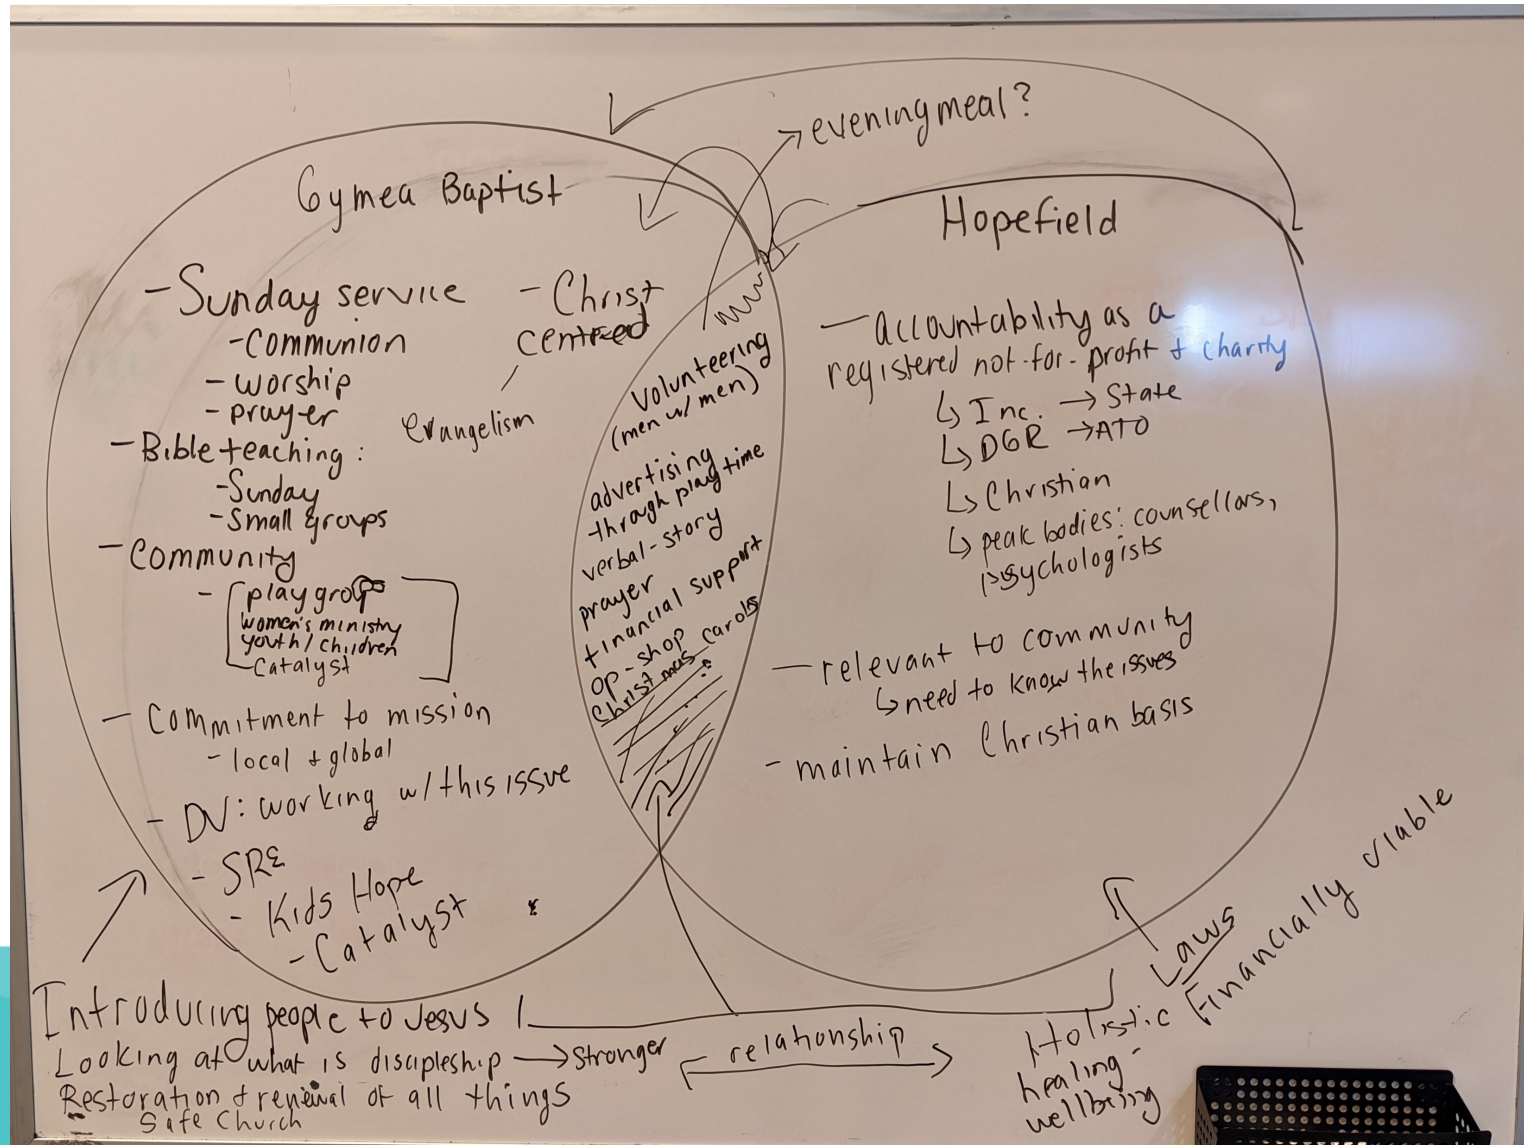 evening meal?
Gymea Baptist
- Sunday service
- Communion
- worship
- prayer
- Bible teaching:
- Sunday
- Small groups
- Community
- playgroup
women's ministry
youth / children
- Catalyst
- Commitment to mission
- local + global
- DV: working w/ this issue
- SRE
- Kids Hope
- Catalyst
- Christ
centred
evangelism
Volunteering
(men w/ men)
advertising
through playtime
verbal-story
prayer
financial support
op-shop
Christmas carols
Hopefield
- accountability as a
registered not-for-profit + charity
↳ Inc. → State
↳ DGR → ATO
↳ Christian
↳ peak bodies: counsellors,
psychologists
- relevant to community
↳ need to know the issues
- maintain Christian basis
Introducing people to Jesus
Looking at what is discipleship → Stronger
Restoration + renewal of all things
- Safe Church
relationship
Laws
Financially viable
Holistic
healing -
wellbeing